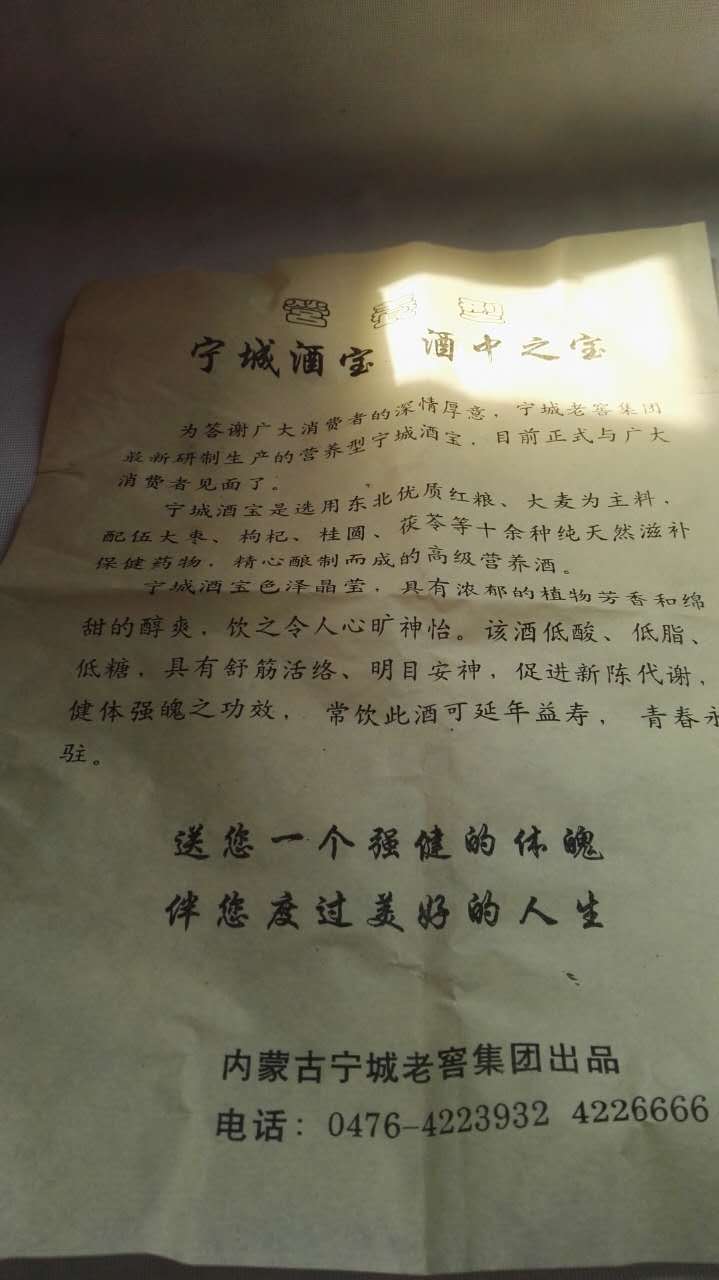 营养型
宁城酒宝 酒中之宝
为答谢广大消费者的深情厚意，宁城老窖集团
最新研制生产的营养型宁城酒宝，目前正式与广大
消费者见面了。
宁城酒宝是选用东北优质红粮、大麦为主料，
配伍大枣、枸杞、桂圆、茯苓等十余种纯天然滋补
保健药物，精心酿制而成的高级营养酒。
宁城酒宝色泽晶莹，具有浓郁的植物芳香和绵
甜的醇爽，饮之令人心旷神怡。该酒低酸、低脂、
低糖，具有舒筋活络、明目安神，促进新陈代谢，
健体强魄之功效，常饮此酒可延年益寿，青春永
驻。
送您一个强健的体魄
伴您度过美好的人生
内蒙古宁城老窖集团出品
电话：0476-4223932 4226666